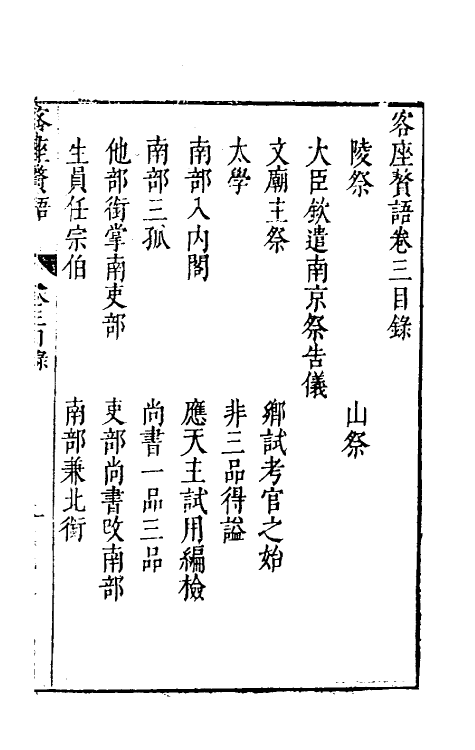 客座贅語卷三目錄
陵祭　山祭
大臣欽遣南京祭告儀
文廟主祭　鄉試考官之始
太學　非三品得謚
南部入內閣　應天主試用編檢
南部三孤　尚書一品三品
他部銜掌南吏部　吏部尚書改南部
生員任宗伯　南部兼北銜
客座贅語　卷三目錄　一